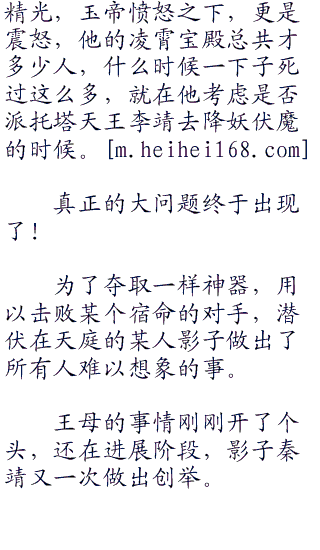 精光，玉帝愤怒之下，更是
震怒，他的凌霄宝殿总共才
多少人，什么时候一下子死
过这么多，就在他考虑是否
派托塔天王李靖去降妖伏魔
的时候。[m.heihei168.com]
真正的大问题终于出现
了！
为了夺取一样神器，用
以击败某个宿命的对手，潜
伏在天庭的某人影子做出了
所有人难以想象的事。
王母的事情刚刚开了个
头，还在进展阶段，影子秦
靖又一次做出创举。